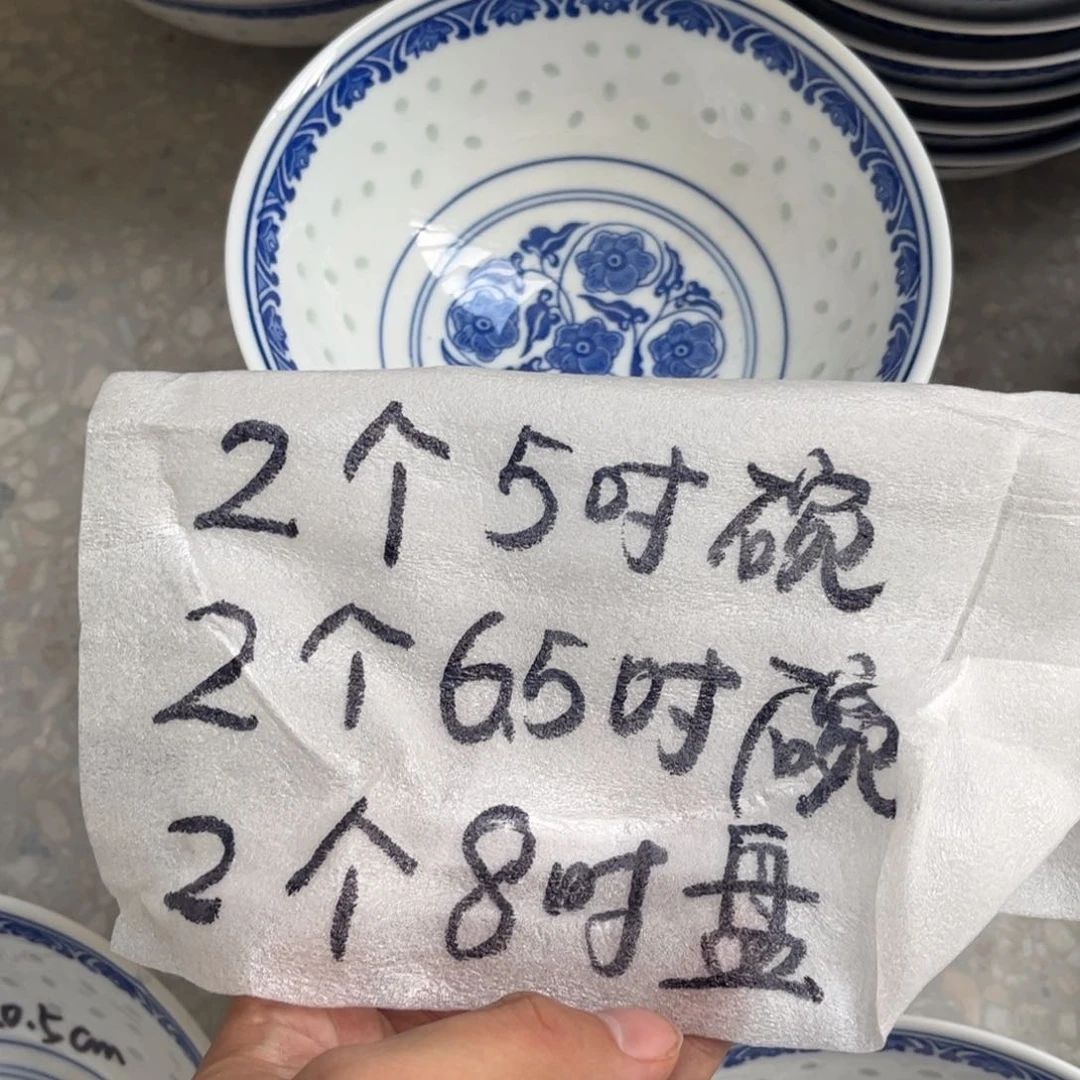 2个5吋碗
2个6.5吋碗
2个8吋盘
0.5cm